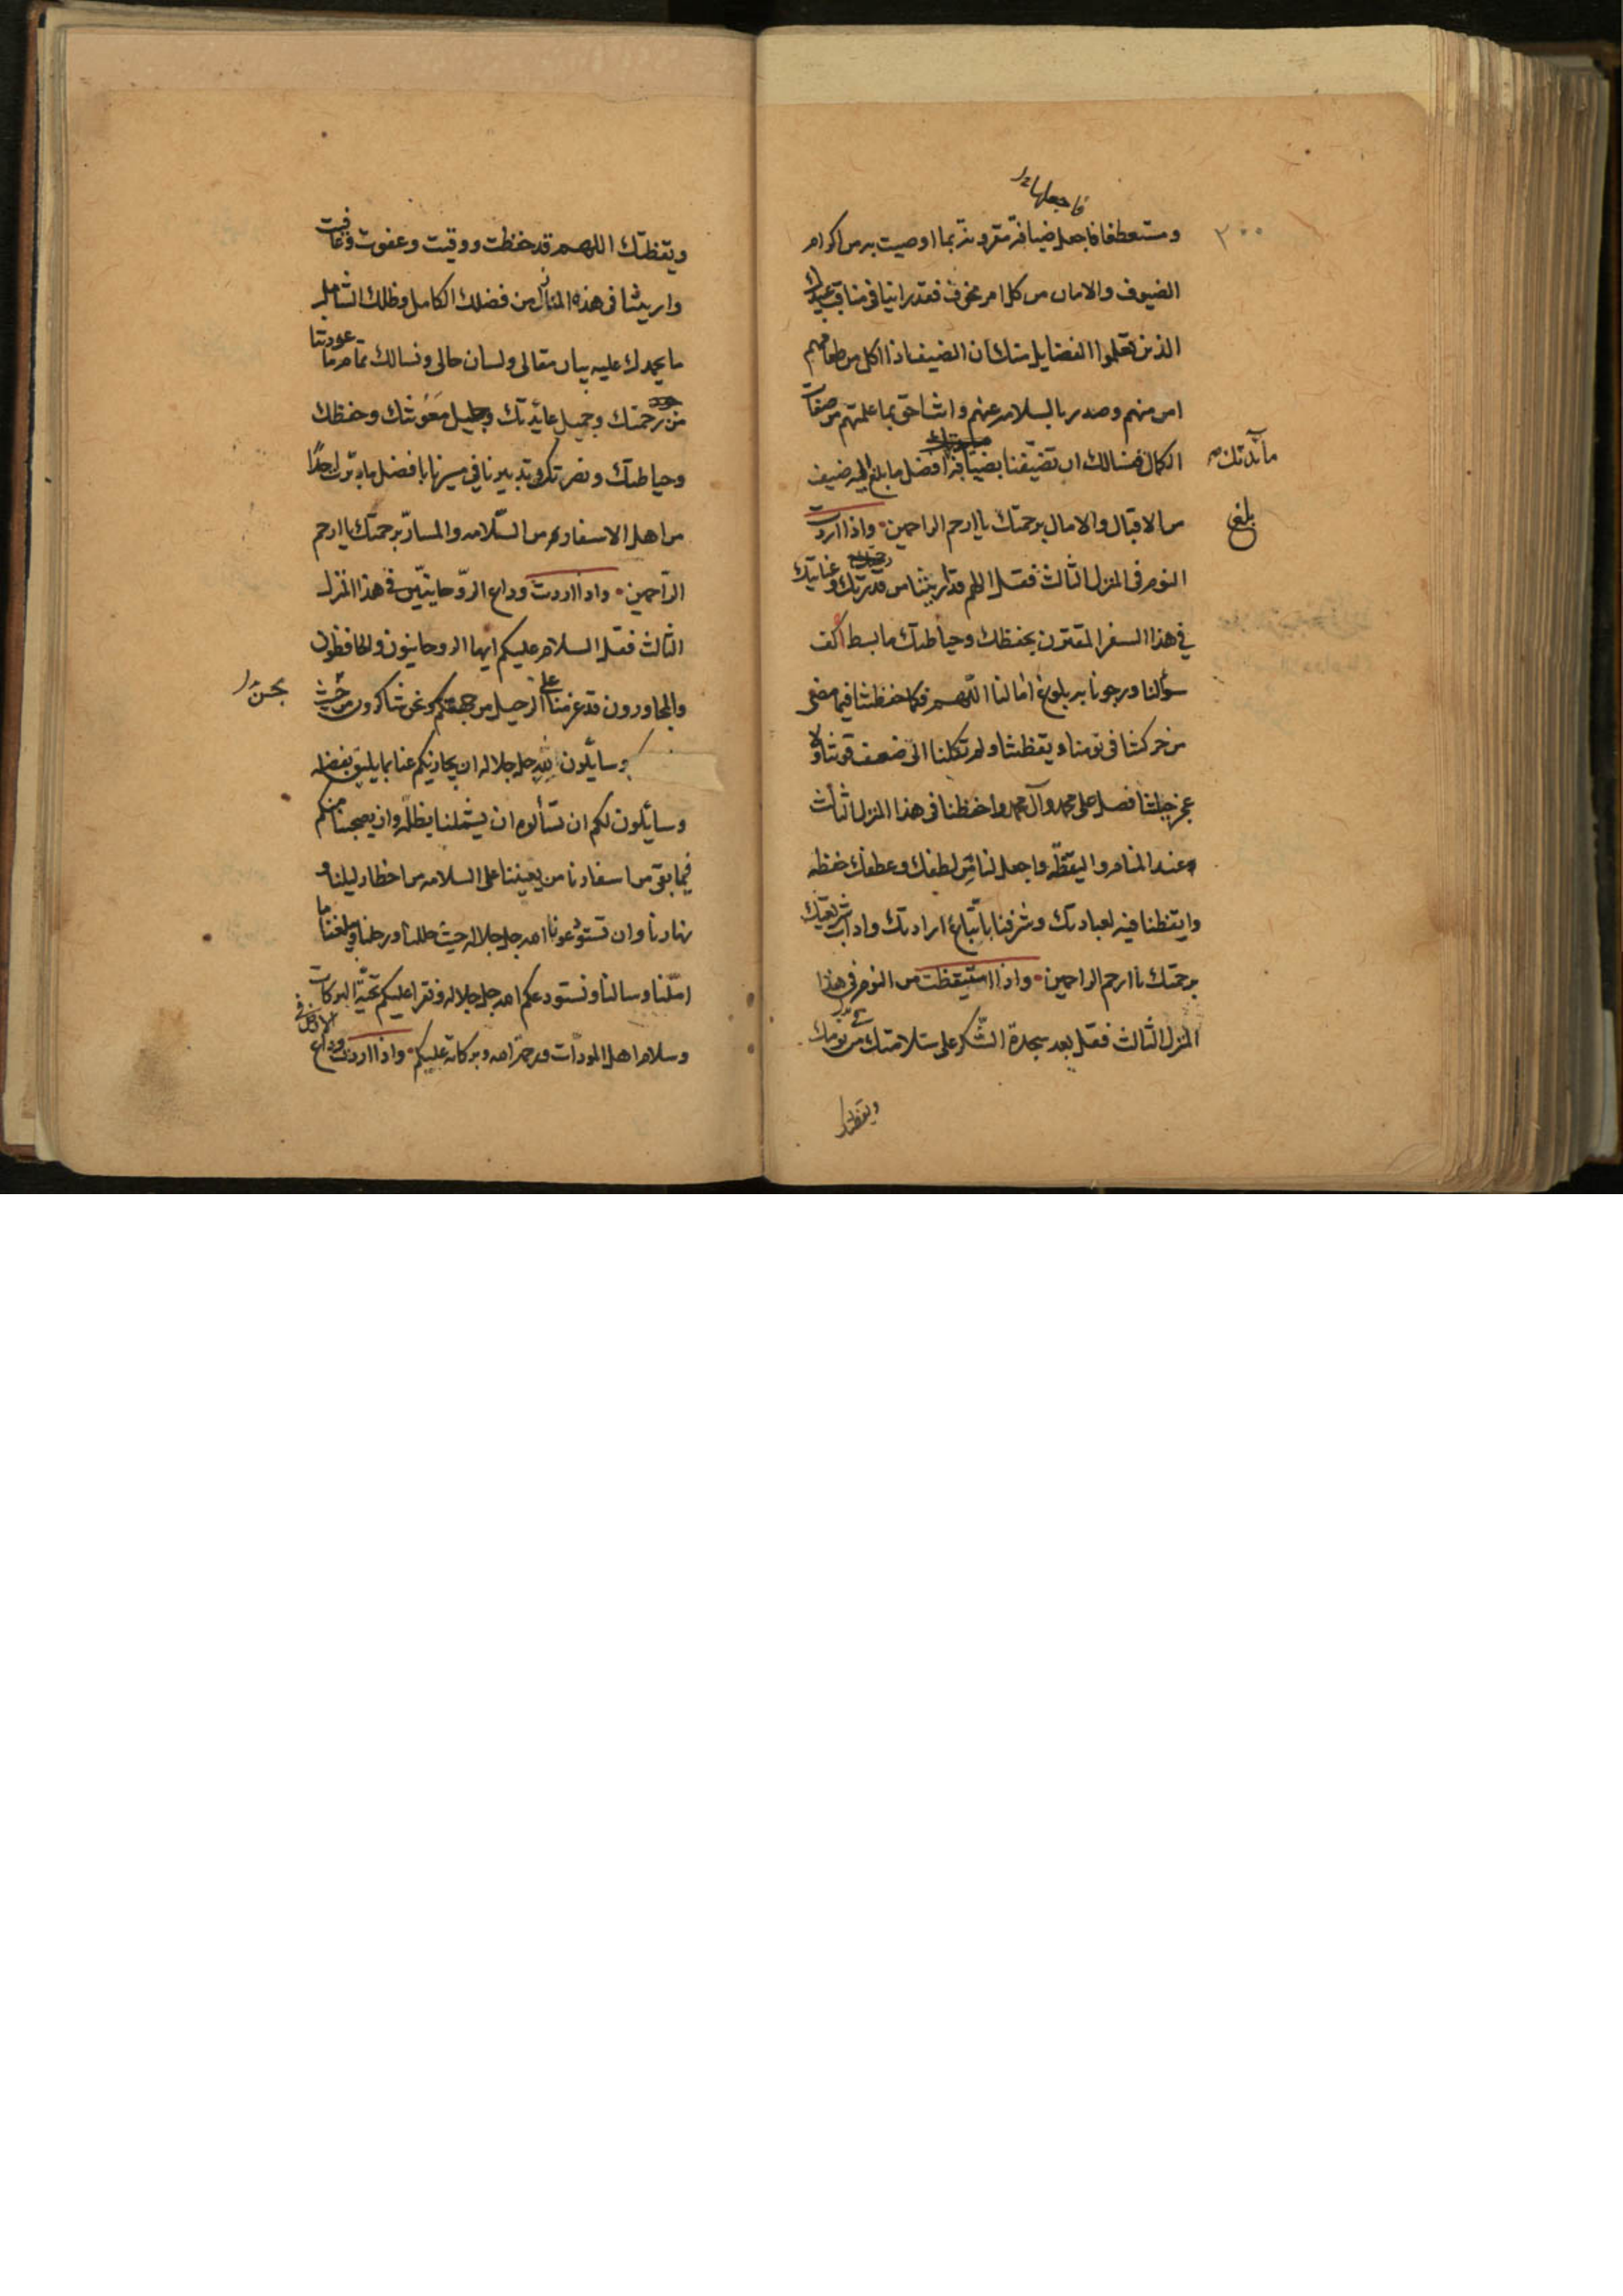 فاجعلها
٢٠٠
ومستعطفا فاجعل ضيافة مقرونة بما اوصيت به من اكرام
الضيوف والامان من كل امر مخوف فقد راينا في مناقب عبيدك
الذين تعلموا الفضايل منك ان الضيف اذا اكل من طعامهم
امن منهم وصدر بالسلامة عنهم وانت احق بما علمتهم من صفات
الكمال فنسالك ان تضيفنا بضيافة افضل ما بلغ اليه ضيف
مائدتك
من الاقبال والامال برحمتك يا ارحم الراحمين واذا اردت
بلغ
النوم في المنزل الثالث فقل اللهم قد اريتنا من قدرتك وعنايتك
في هذا السفر المقترن بحفظك وحياطتك ما بسط اكف
سؤالنا ورجونا به بلوغ امالنا اللهم فكما حفظتنا فيما مضى
من حركتنا في نومنا ويقظتنا ولم تكلنا الى ضعف قوتنا ولا
عجز حيلتنا فصل على محمد وآل محمد واحفظنا في هذا المنزل الثالث
عند المنام واليقظة واجعل لنا من لطفك وعطفك حفظه
وايقظنا فيه لعبادتك وشرفنا باتباع ارادتك واداب شريعتك
برحمتك يا ارحم الراحمين واذا استيقظت من النوم في هذا
المنزل الثالث فقل بعد سجدة الشكر على سلامتك من نومك
ويقظتك
ويقظتك اللهم قد حفظت ووقيت وعفوت وعافيت
واريتنا في هذه المنازل من فضلك الكامل وظلك الشامل
ما يحمدك عليه بيان مقالي ولسان حالي ونسالك تمام ما عودتنا
من رحمتك وجميل عائدتك وجليل معونتك وحفظك
وحياطتك ونصرتك وتدبيرنا في مسيرنا بافضل ما دبرت احدا
من اهل الاسفار من السلامة والمسار برحمتك يا ارحم
الراحمين واذا اردت وداع الروحانيين في هذا المنزل
الثالث فقل السلام عليكم ايها الروحانيون والحافظون
والمجاورون قد عزمنا على الرحيل من جهتكم ونحن شاكرون من
بحسن
وسايلون لله جل جلاله ان يجازيكم عنا بما يليق بفضله
وسايلون لكم ان تسألوه ان يشملنا بظله وان يصحبنا منكم
فيما بقي من اسفارنا من يعيننا على السلامه من اخطار ليلنا و
نهارنا وان تستودعونا الله جل جلاله حيث حللنا ورحلنا وبلغنا ما
املنا وسالنا ونستودعكم الله جل جلاله ونقرا عليكم تحية البركات
وسلام اهل المودات ورحمة الله وبركاته عليكم واذا اردت وداع
الارض في